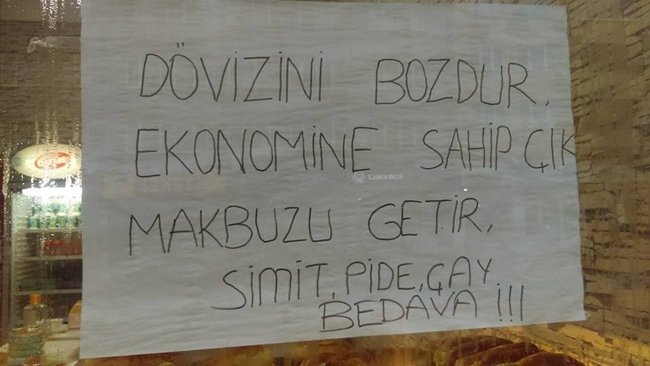 DÖVİZİNİ BOZDUR,
EKONOMİNE SAHİP ÇIK
MAKBUZU GETİR,
SİMİT, PİDE, ÇAY
BEDAVA !!!